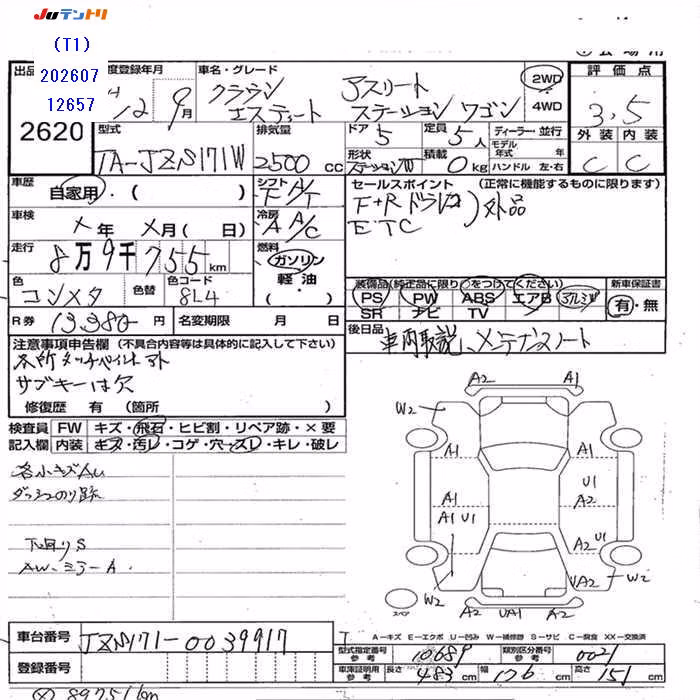 JUテントリ
(T1)
202607
12657
出品
2620
度登録年月
12年 9月
車名・グレード
クラウン アスリート
エステート ステーション ワゴン
2WD
4WD
評価点
3.5
外装 内装
C C
型式
TA-JZS171W
排気量
2500 cc
ドア 5
定員 5人
形状 ステーションW
積載 0kg
ディーラー・並行
モデル年式 年
ハンドル 左・右
車歴
自家用・( )
シフト F A/T
セールスポイント (正常に機能するものに限ります)
ETC
外品
車検
×年 ×月( 日)
冷房 A A/C
走行
8万9千755km
燃料
ガソリン
軽油・
( )
色
コンメタ
色替
色コード
8L4
装備品(純正品に限り○をつけてください)
PS PW ABS エアB アルミW
SR ナビ TV
新車保証書
有・無
R券 13,380円
名変期限 月 日
後日品
車両取説、メンテナンスノート
注意事項申告欄 (不具合内容等は具体的に記入して下さい)
各所タッチペイント
サブキーは欠
修復歴 有 (箇所 )
検査員 FW キズ・飛石・ヒビ割・リペア跡・×要
記入欄 内装 キズ・汚レ・コゲ・穴・スレ・キレ・破レ
各小キズAU
ダッシュのり跡
下回りS
AW・ミラーA
A2 A1
W2
A1 A1
U1
A1 A2
A1 U1
A2 U1
UA2 W2
スペア W2 A2 UA1 A2
A-キズ E-エクボ U-凹み W-補修跡 S-サビ C-腐食 XX-交換済
車台番号
JZS171-0039917
登録番号
型式指定番号 参考 10689
類別区分番号 参考 0021
車庫証明用 参考 長さ 483cm 幅 176cm 高さ 151cm
89751km